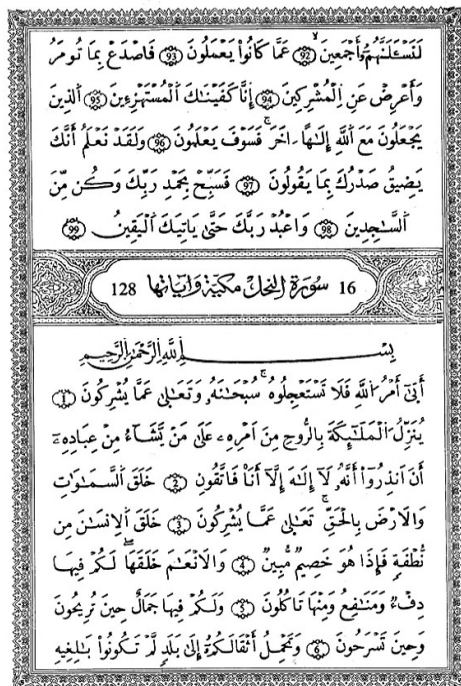 لَنَسْـَٔلَنَّهُمُۥٓ أَجْمَعِينَ 92 عَمَّا كَانُوا يَعْمَلُونَ 93 فَاصْدَعْ بِمَا تُومَرُ
وَأَعْرِضْ عَنِ الْمُشْرِكِينَ 94 إِنَّا كَفَيْنَاكَ الْمُسْتَهْزِءِينَ 95 الذِينَ
يَجْعَلُونَ مَعَ اللَّهِ إِلَٰهًا ـاخَرَ فَسَوْفَ يَعْلَمُونَ 96 وَلَقَدْ نَعْلَمُ أَنَّكَ
يَضِيقُ صَدْرُكَ بِمَا يَقُولُونَ 97 فَسَبِّحْ بِحَمْدِ رَبِّكَ وَكُن مِّنَ
السَّٰجِدِينَ 98 وَاعْبُدْ رَبَّكَ حَتَّىٰ يَاتِيَكَ الْيَقِينُ 99
16 سُورَةُ النَّحْلِ مَكِّيَّة وَءَايَاتُهَا 128
بِسْمِ اللَّهِ الرَّحْمَٰنِ الرَّحِيمِ
أَتَىٰٓ أَمْرُ اللَّهِ فَلَا تَسْتَعْجِلُوهُ سُبْحَٰنَهُۥ وَتَعَٰلَىٰ عَمَّا يُشْرِكُونَ 1
يُنَزِّلُ الْمَلَٰٓئِكَةَ بِالرُّوحِ مِنَ اَمْرِهِۦ عَلَىٰ مَنْ يَّشَآءُ مِنْ عِبَادِهِۦٓ
أَنَ اَنذِرُوٓا أَنَّهُۥ لَآ إِلَٰهَ إِلَّآ أَنَا فَاتَّقُونِ 2 خَلَقَ السَّمَٰوَٰتِ
وَالَارْضَ بِالْحَقِّ تَعَٰلَىٰ عَمَّا يُشْرِكُونَ 3 خَلَقَ الِانسَٰنَ مِن
نُّطْفَةٍ فَإِذَا هُوَ خَصِيمٌ مُّبِينٌ 4 وَالَانْعَٰمَ خَلَقَهَا لَكُمْ فِيهَا
دِفْءٌ وَمَنَٰفِعُ وَمِنْهَا تَاكُلُونَ 5 وَلَكُمْ فِيهَا جَمَالٌ حِينَ تُرِيحُونَ
وَحِينَ تَسْرَحُونَ 6 وَتَحْمِلُ أَثْقَالَكُمُۥٓ إِلَىٰ بَلَدٍ لَّمْ تَكُونُوا بَٰلِغِيهِ